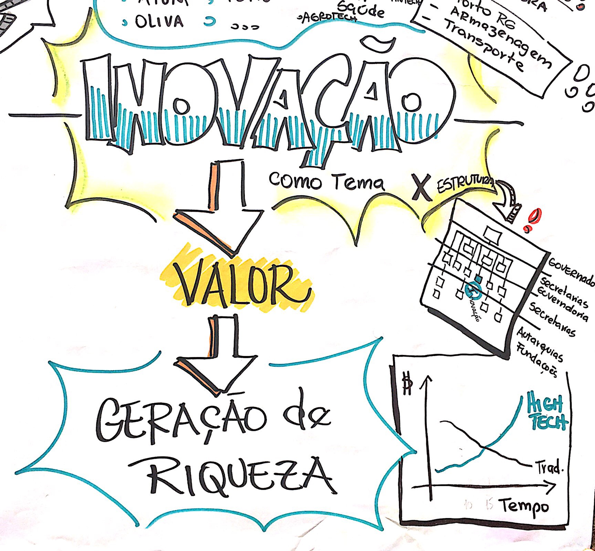 OLIVA
Saúde
AGROTECH
Porto RG
- Armazenagem
- Transporte
INOVAÇÃO
como Tema X ESTRUTURA
VALOR
GERAÇÃO de
RIQUEZA
Governado
Secretarias
Governadoria
Secretarias
Autarquias
Fundações
$
HIGH
TECH
Trad.
Tempo